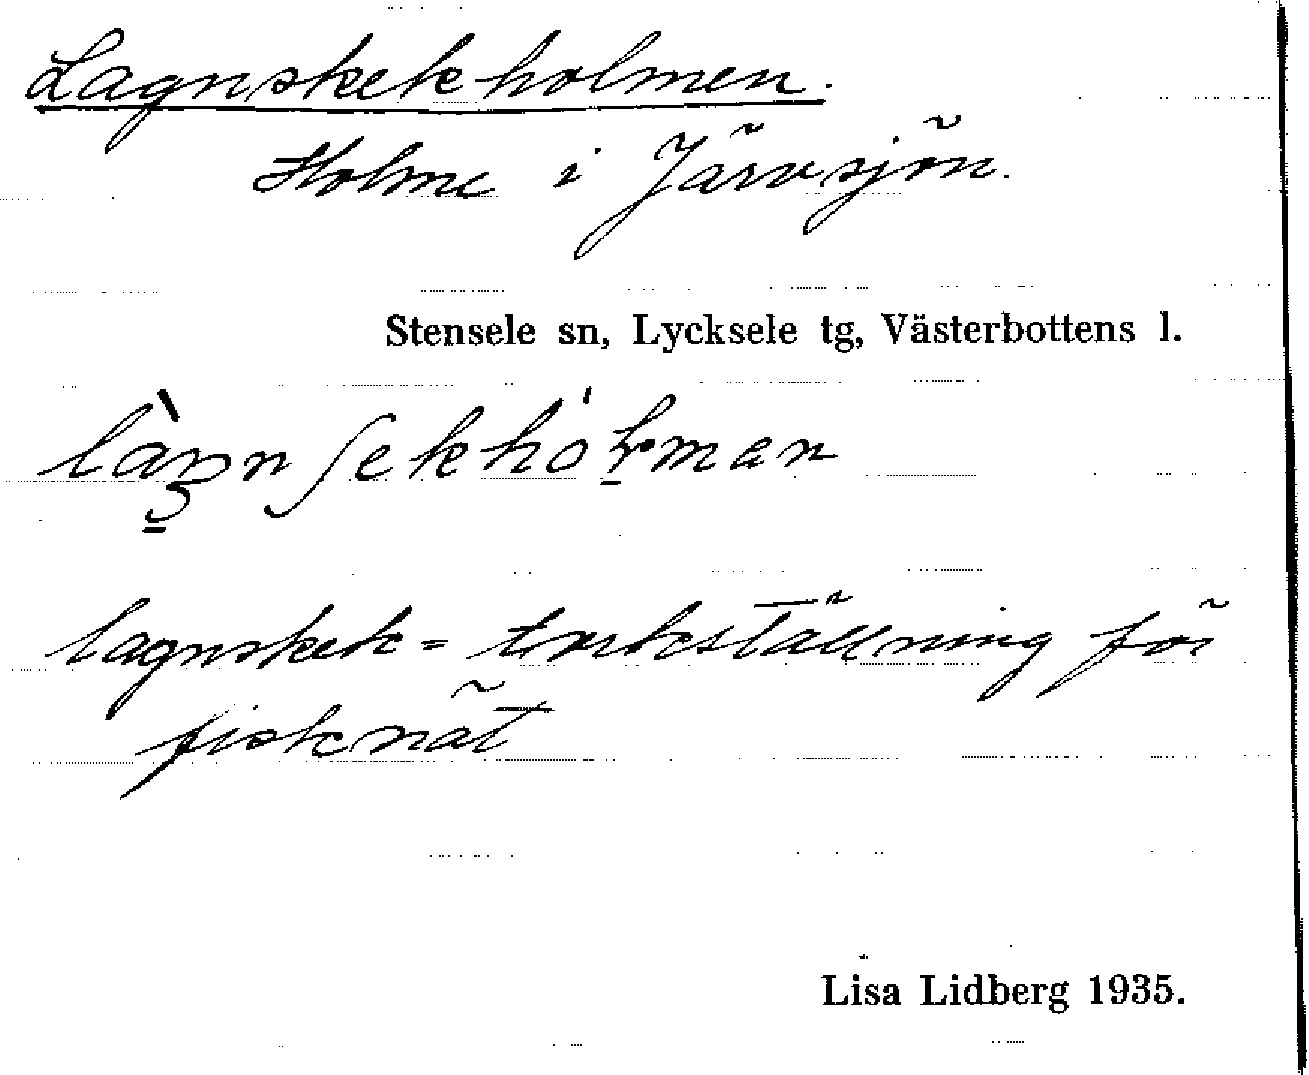 Lagnskekholmen.
Holme i Järvsjön.
Stensele sn, Lycksele tg, Västerbottens l.
lagnskek = torkställning för
fisknät
Lisa Lidberg 1935.